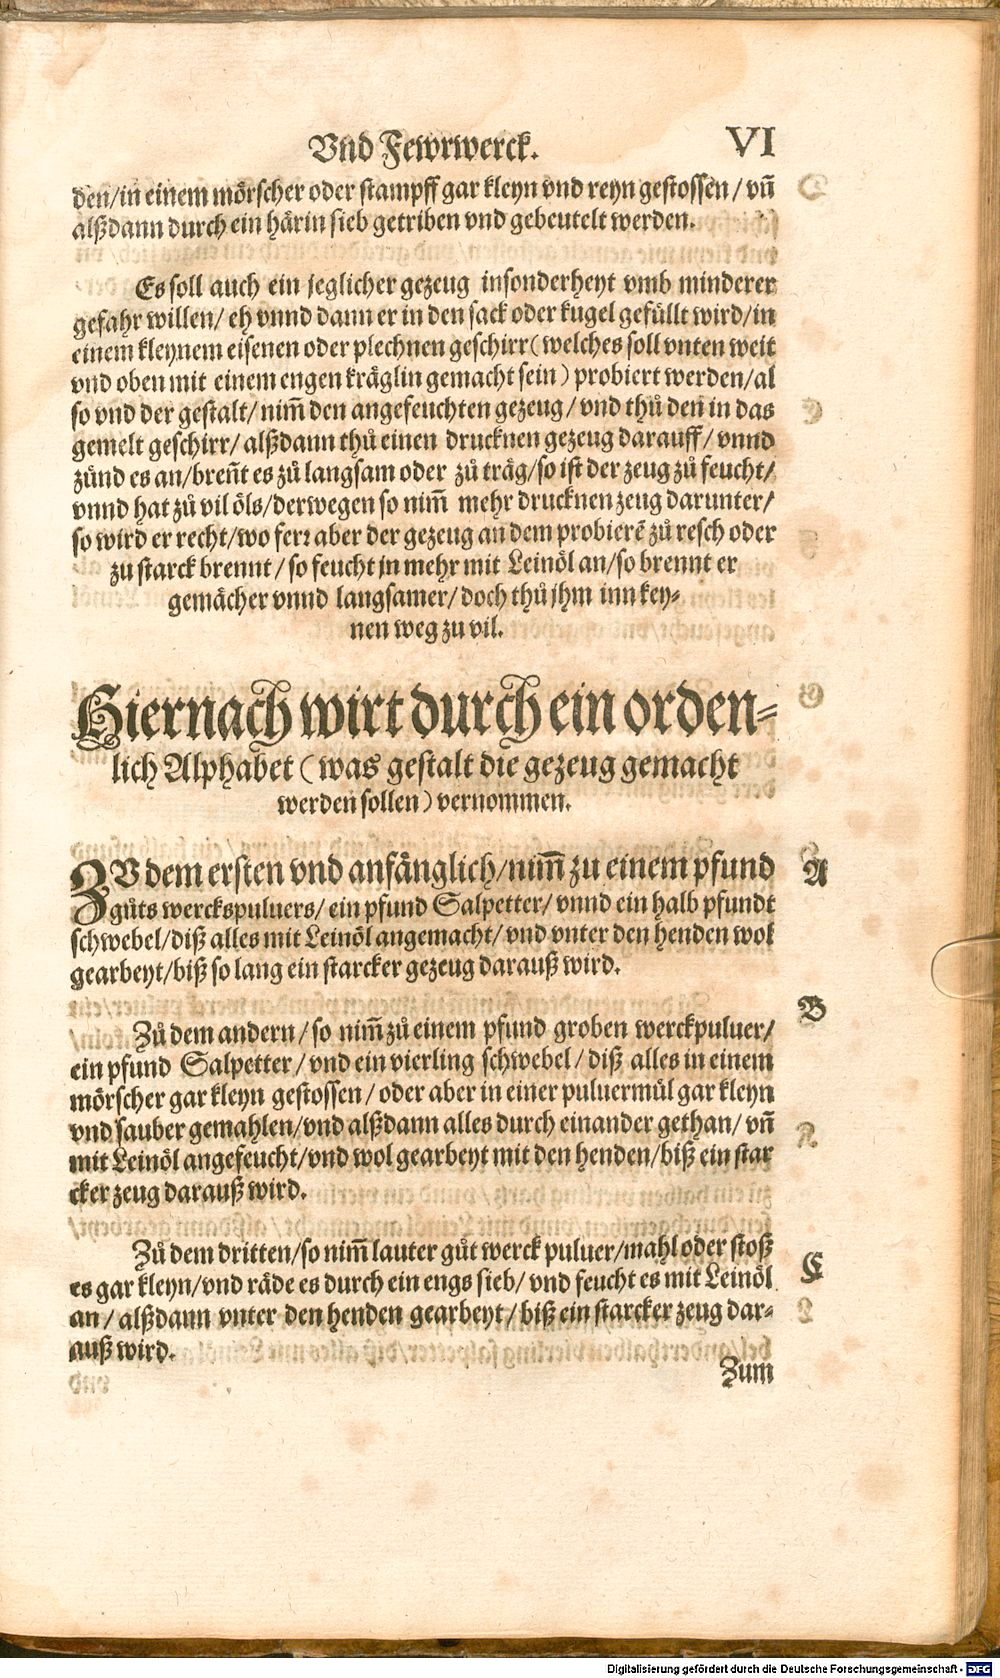 Vnd Fewrwerck.
VI
den/in einem mörscher oder stampff gar kleyn vnd reyn gestossen/ vñ
alßdann durch ein härin sieb getriben vnd gebeutelt werden.
Es soll auch ein jeglicher gezeug insonderheyt vmb minderer
gefahr willen/ eh vnnd dann er in den sack oder kugel gefüllt wird/in
einem kleynem eisenen oder plechnen geschirr(welches soll vnten weit
vnd oben mit einem engen kräglin gemacht sein) probiert werden/al
so vnd der gestalt/nim̃ den angefeuchten gezeug/vnd thů den in das
gemelt geschirr/ alßdann thů einen drucknen gezeug darauff/ vnnd
zünd es an/breñt es zů langsam oder zů träg/so ist der zeug zů feucht/
vnnd hat zů vil öls/derwegen so nim̃ mehr drucknen zeug darunter/
so wird er recht/wo ferꝛ aber der gezeug an dem probierẽ zů resch oder
zu starck brennt/so feucht jn mehr mit Leinöl an/so brennt er
gemächer vnnd langsamer/doch thů jhm inn key-
nen weg zu vil.
Hiernach wirt durch ein orden-
lich Alphabet (was gestalt die gezeug gemacht
werden sollen) vernommen.
A
ZV dem ersten vnd anfänglich/nim̃ zu einem pfund
gůts werckspuluers/ ein pfund Salpetter/ vnnd ein halb pfundt
schwebel/diß alles mit Leinöl angemacht/ vnd vnter den henden wol
gearbeyt/biß so lang ein starcker gezeug darauß wird.
B
Zů dem andern/so nim̃ zů einem pfund groben werckpuluer/
ein pfund Salpetter/vnd ein vierling schwebel/diß alles in einem
mörscher gar kleyn gestossen/ oder aber in einer puluermül gar kleyn
vnd sauber gemahlen/vnd alßdann alles durch einander gethan/ vñ
mit Leinöl angefeucht/vnd wol gearbeyt mit den henden/biß ein star
cker zeug darauß wird.
C
Zů dem dritten/so nim̃ lauter gůt werck puluer/mahl oder stoß
es gar kleyn/vnd räde es durch ein engs sieb/ vnd feucht es mit Leinöl
an/ alßdann vnter den henden gearbeyt/biß ein starcker zeug dar-
auß wird.
Zum
Digitalisierung gefördert durch die Deutsche Forschungsgemeinschaft - DFG